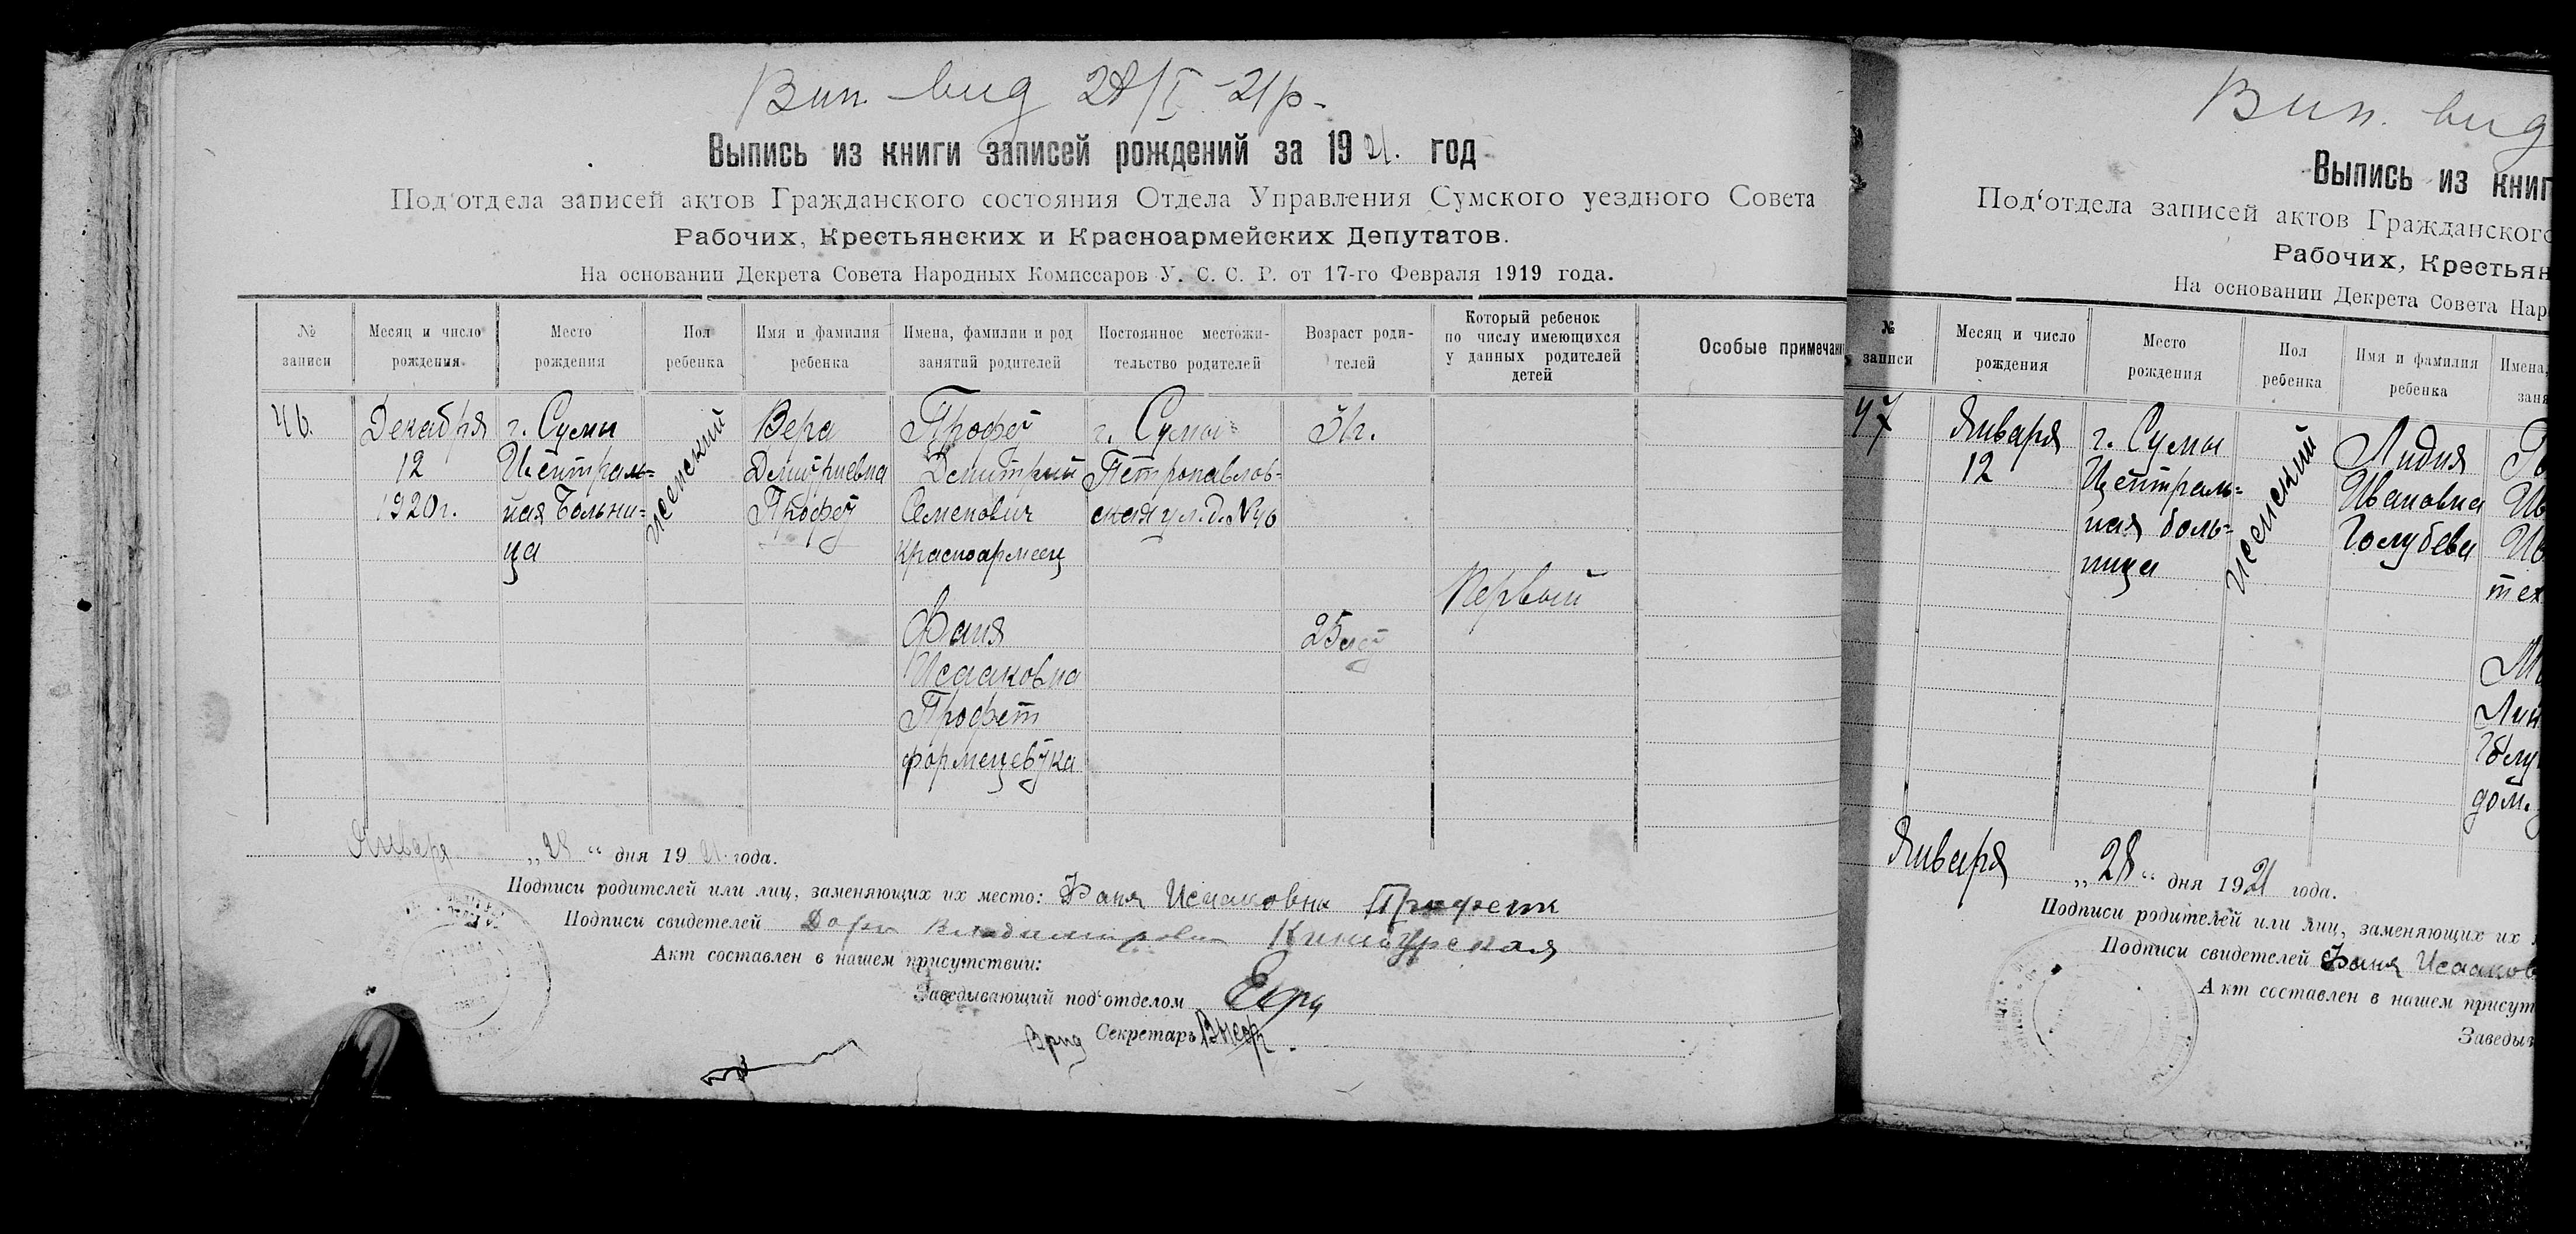 Вип. вид 28/I-21р.
Выпись из книги записей рождений за 1921. год
Под‘отдела записей актов Гражданского состояния Отдела Управления Сумского уездного Совета
Рабочих, Крестьянских и Красноармейских Депутатов.
На основании Декрета Совета Народных Комиссаров У. С. С. Р. от 17-го Февраля 1919 года.
№ записи
Месяц и число рождения
Место рождения
Пол ребенка
Имя и фамилия ребенка
Имена, фамилии и род занятий родителей
Постоянное местожи-
тельство родителей
Возраст роди-
телей
Который ребенок
по числу имеющихся
у данных родителей
детей
Особые примечани
46.
Декабря
12
1920г.
г. Сумы
Централь-
ная Больни-
ца
женский
Вера
Дмитриевна
Профет
Профет
Дмитрий
Семенович
красноармеец
Фаня
Исааковна
Профет
г. Сумы
Петропавлов-
ская ул. д. №46
31г.
25 лет
Первый
Января „28“ дня 1921. года.
Подписи родителей или лиц, заменяющих их место: Фаня Исааковна Профет
Подписи свидетелей
Акт составлен в нашем присутствии:
Заведывающий под‘отделом
Врид Секретарь
Вип. вид
Выпись из книг
Под‘отдела записей актов Гражданского
Рабочих, Крестьян
На основании Декрета Совета Нар
№ записи
Месяц и число рождения
Место рождения
Пол ребенка
Имя и фамилия ребенка
Имена,
заня
47
Января
12
г. Сумы
Централь-
ная боль-
ница
женский
Лидия
Ивановна
Голубева
Го
Ив
Ив
тех
Ма
Лин
Голу
дом.
Января „28“ дня 1921 года.
Подписи родителей или лиц, заменяющих их
Подписи свидетелей Фаня Исааков
Акт составлен в нашем присут
Заведыв